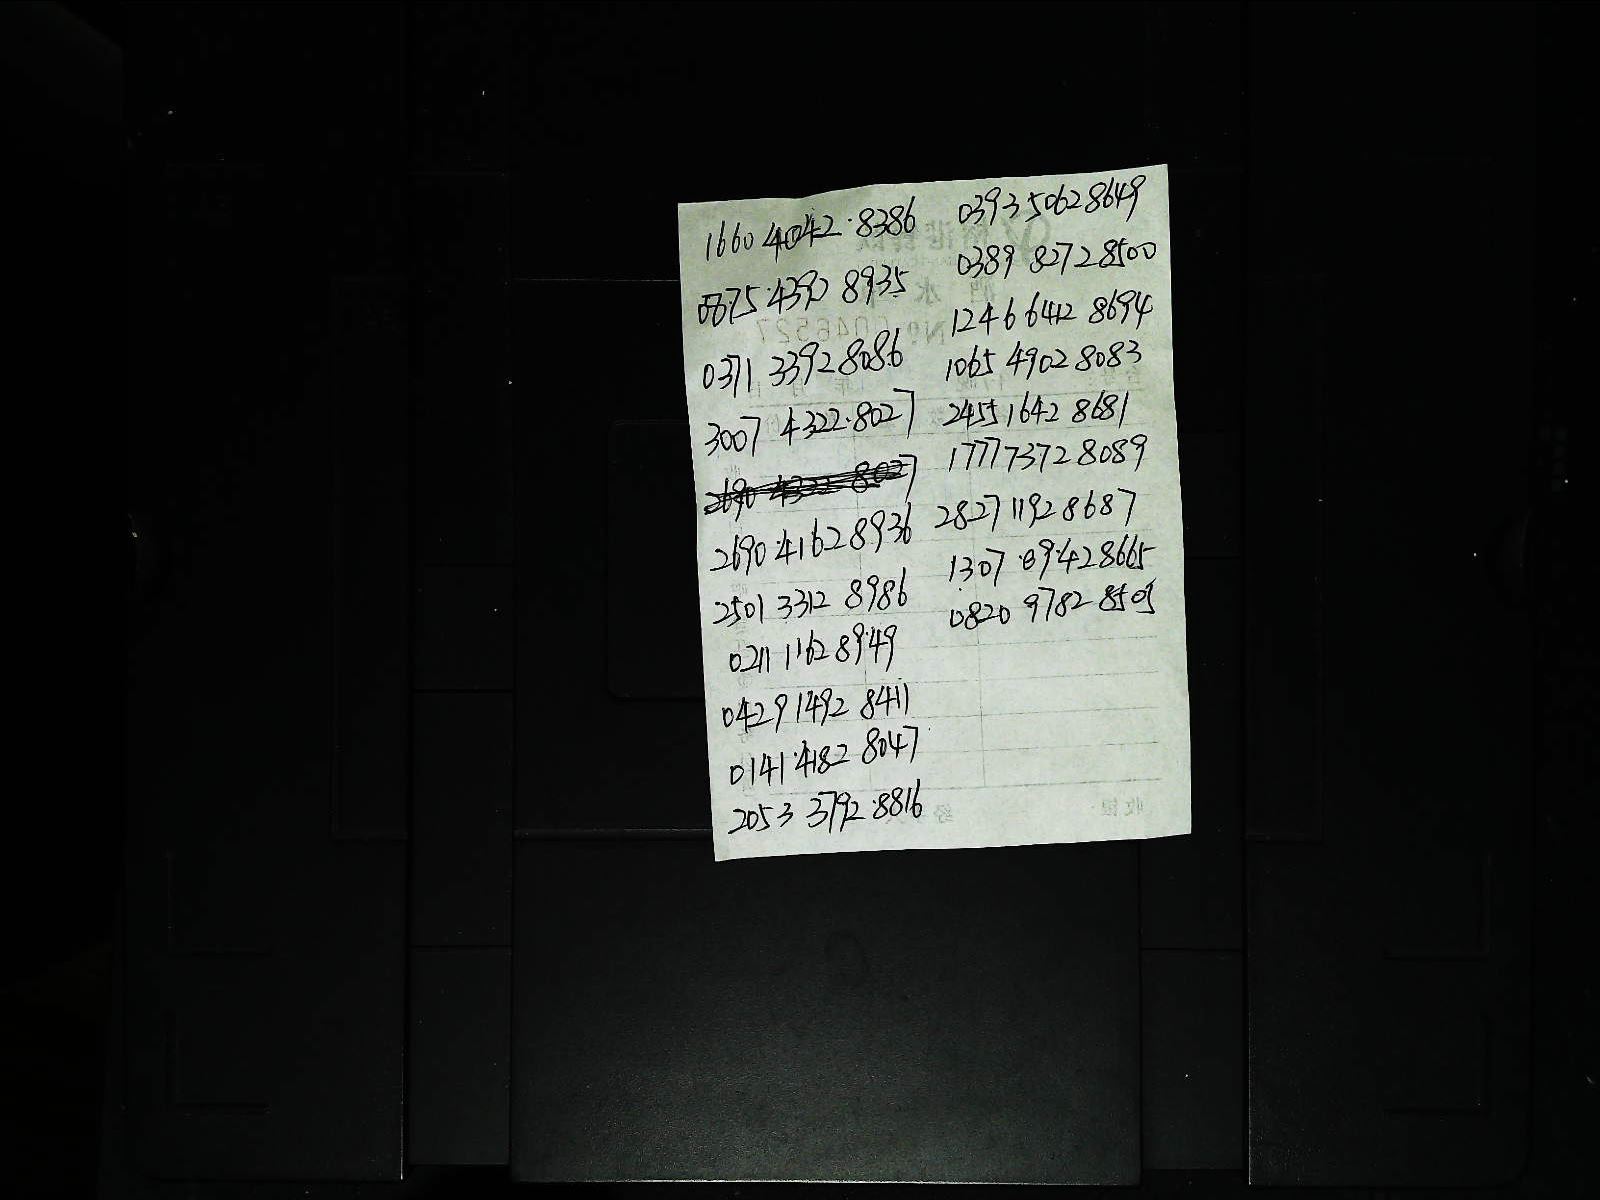 1660 4042·8386
0675·4392 8935
0371 3392 8086
3007 4322·8027
2690 4322 8027
2690·4162 8936
2501 3312 8986
0211 1162 8949
0429 1492 8411
0141·4182 8047
2053 3792·8816
0393 5062 8649
0389 8272 8500
1246 6412 8694
1065 4902 8083
2455 1642 8681
1777 7372 8089
2827 1192 8687
1307 89428665
0820 9782 8505